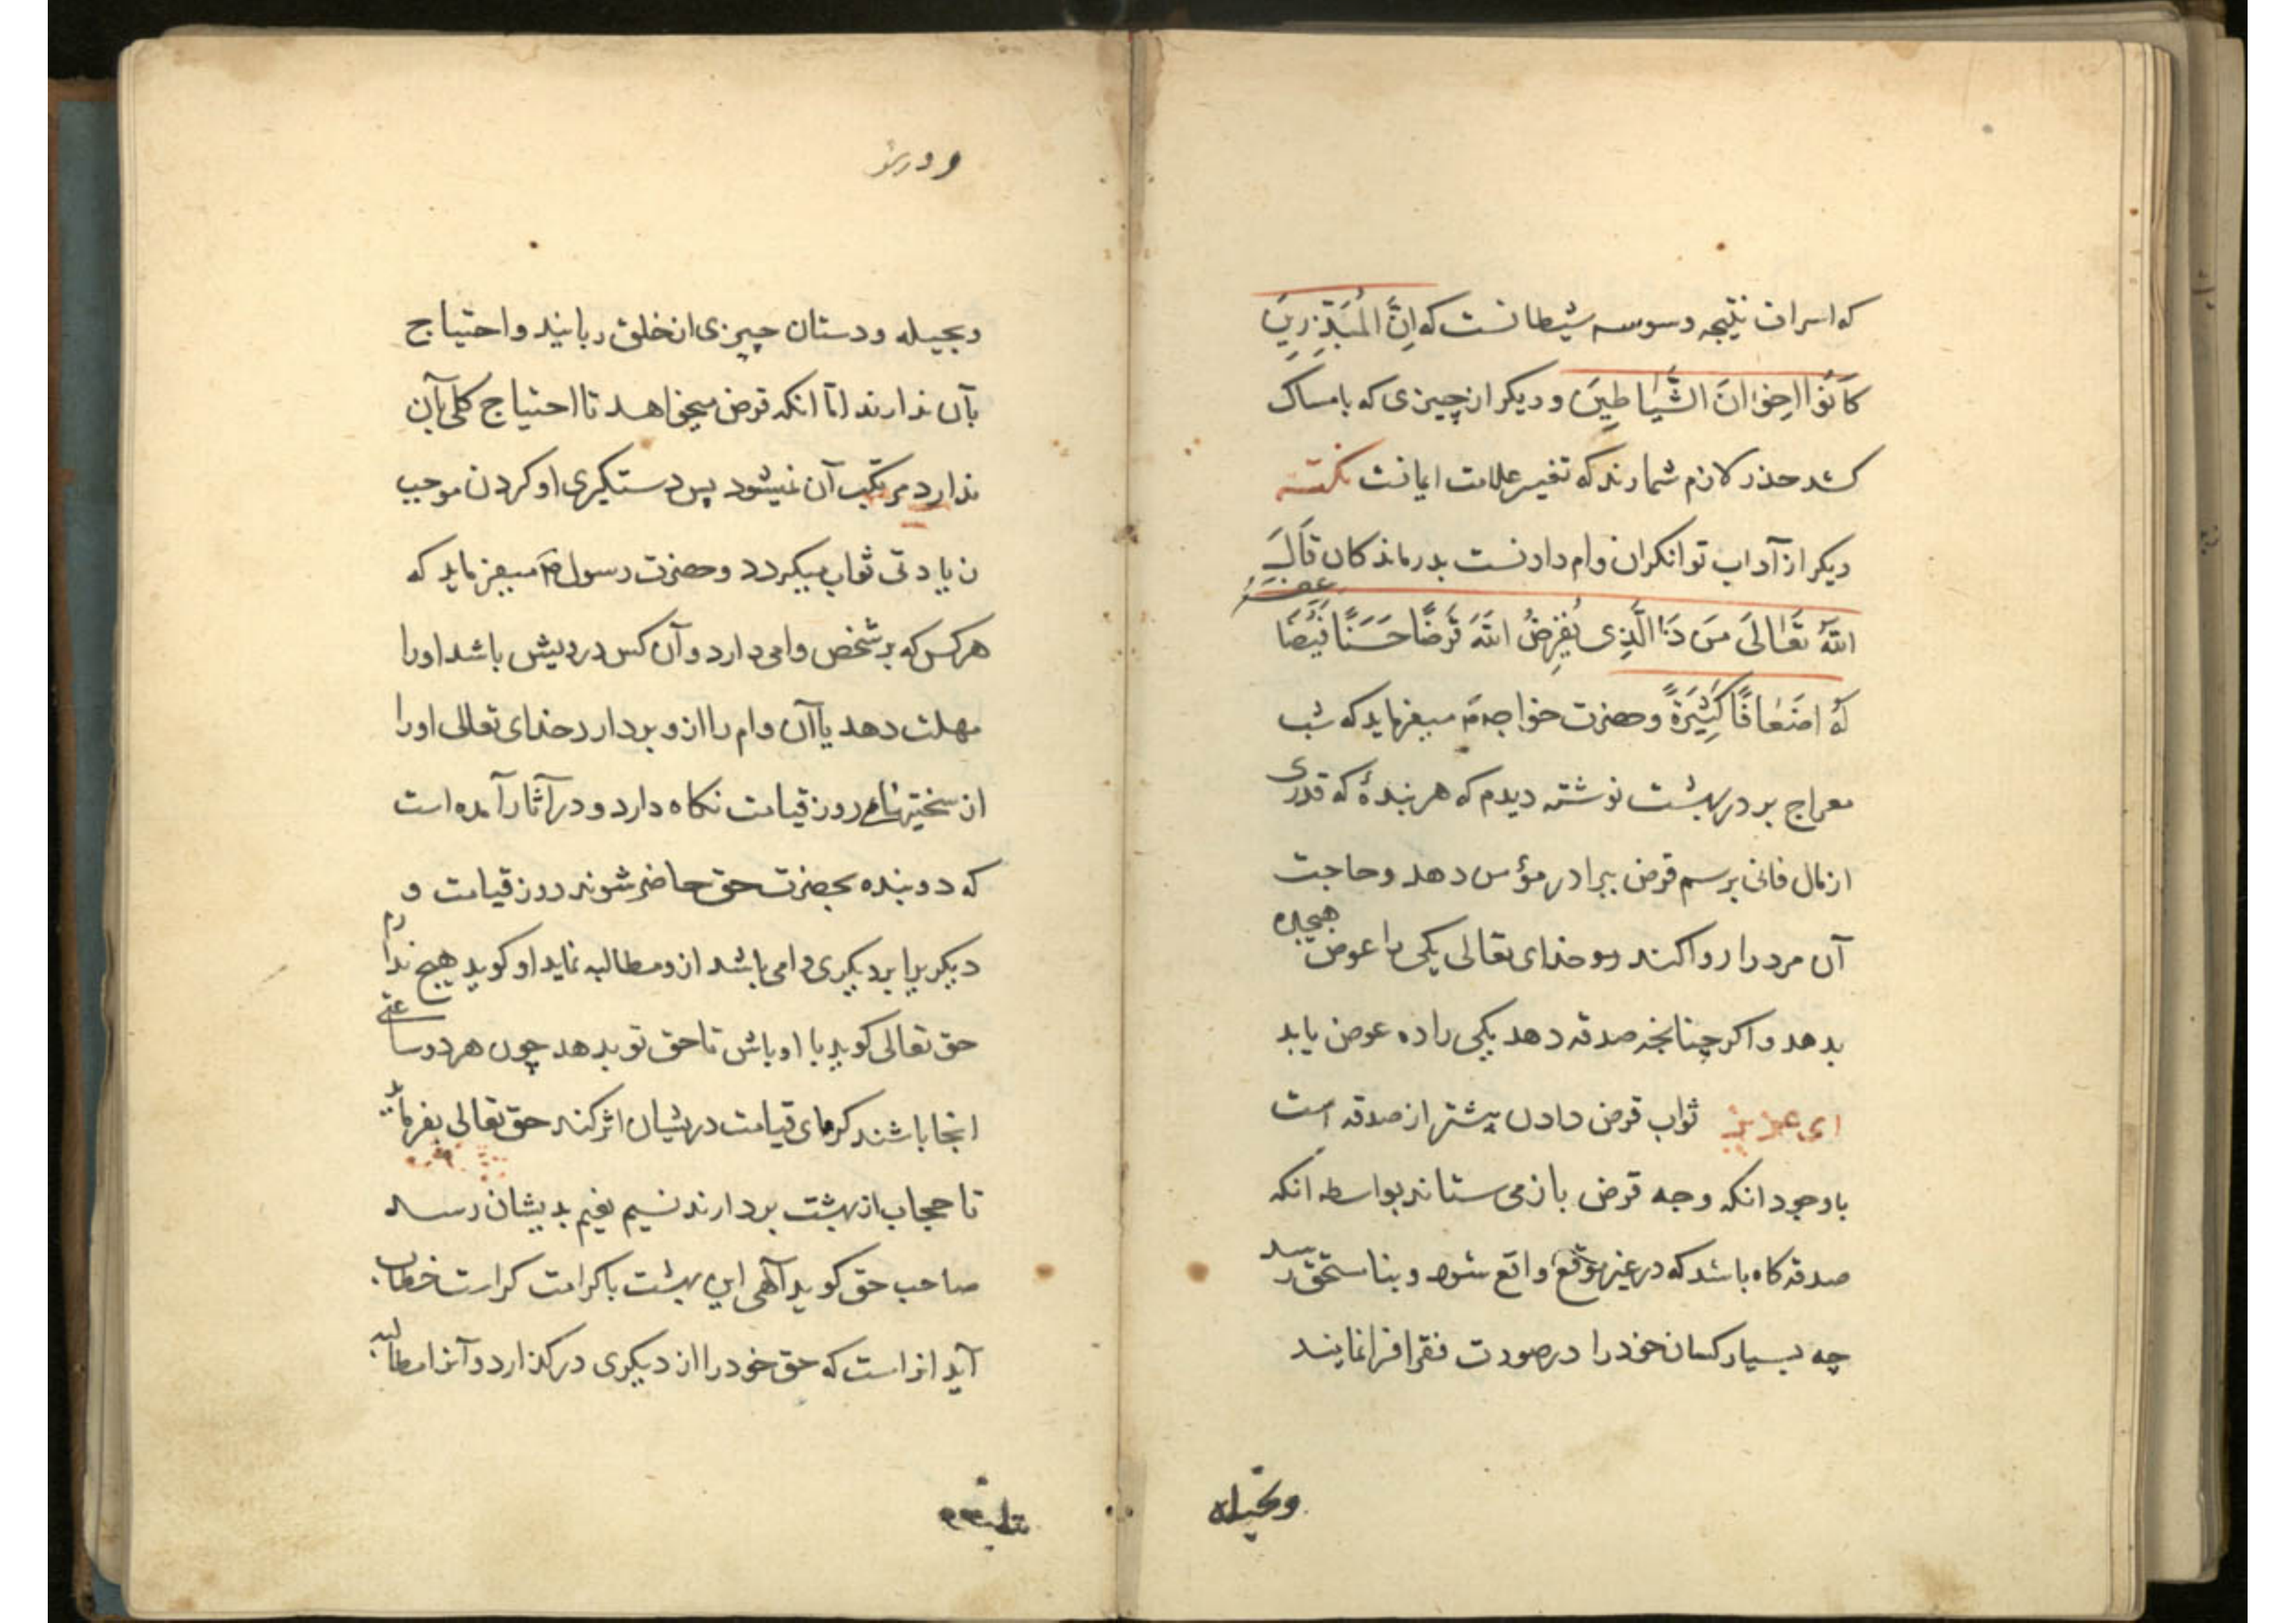 که اسراف نتیجه وسوسه شیطانست که اِنَّ الْمُبَذِّرِینَ
کَانُوا اِخوَانَ الشَّیَاطِینَ و دیکر از چیزی که بامساک
کشد حذر لازم شمارند که تغیر علامت ایمانست نکته
دیکر از آداب توانکران وام دادنست بدرماندکان قَالَ
اللهُ تَعَالَی مَن ذَا الَّذِی یُقرِضُ اللهَ قَرضًا حَسَنًا فَیُضَاعِفَهُ
لَهُ اَضعَافًا کَثِیرَةً و حضرت خواجه میفرماید که شب
معراج بر در بهشت نوشته دیدم که هر بندهٔ که قدری
از مال فانی برسم قرض ببرادر مؤمن دهد و حاجت
آن مرد را روا کند خدای تعالی یکی را عوض هیجده
بدهد و اکر چنانچه صدقه دهد یکی را ده عوض یابد
ای عزیز ثواب قرض دادن بیشتر از صدقه است
باوجود انکه وجه قرض باز می ستاند بواسطه انکه
صدقه کاه باشد که در غیر موقع واقع شود و بنامستحق رسد
چه بسیار کسان خود را در صورت فقرا فرا نمایند
وبحیله
و درش
وبحیله و دستان چیزی از خلق ربایند و احتیاج
بآن ندارند اما انکه قرض میخواهد تا احتیاج کلی بآن
ندارد مرتکب آن نمیشود پس دستکیری او کردن موجب
زیادتی ثواب میکردد و حضرت رسول میفرماید که
هر کس که بر شخص وامی دارد و آن کس درویش باشد او را
مهلت دهد یا آن وام را ازو بردارد خدای تعالی او را
از سختیهای روز قیامت نکاه دارد و در آثار آمده است
که دو بنده بحضرت حق حاضر شوند روز قیامت و
دیکر یرا بر دیکری وامی باشد ازو مطالبه نماید او کوید هیچ ندارم
حق تعالی کوید با او باش تا حق تو بدهد چون هر دو ساعتی
انجا باشند کرمای قیامت دریشان اثر کند حق تعالی بفرماید
تا حجاب از بهشت بردارند نسیم نعیم بدیشان رسد
صاحب حق کوید آلهی این بهشت باکرامت کراست خطاب
آید انراست که حق خود را از دیکری درکذارد و آنرا مطالبه